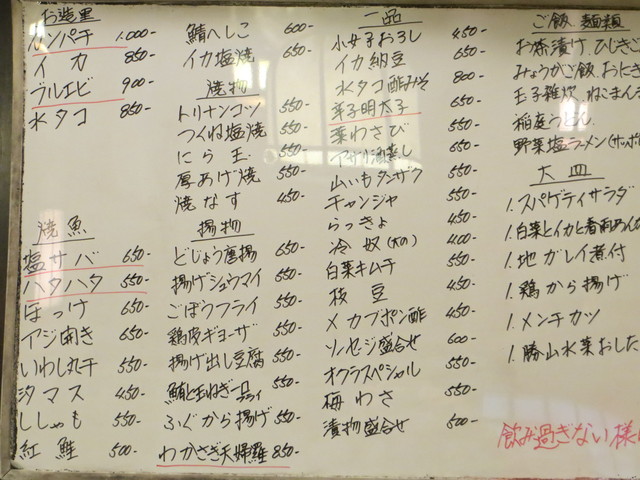 お造里
カンパチ 1.000-
イカ 850-
ブルエビ 900-
水タコ 850-
焼魚
塩サバ 650-
ハタハタ 550-
ほっけ 650-
アジ開き 650-
いわし丸干 550-
汐マス 450-
ししゃも 550-
紅鮭 500-
鯖へしこ 600-
イカ塩焼 650-
焼物
トリナンコツ 550-
つくね塩焼 550-
にら玉 550-
厚あげ焼 550-
焼なす 450-
揚物
どじょう唐揚 650-
揚げシュウマイ 550-
ごぼうフライ 550-
鶏皮ギョーザ 550-
揚げ出し豆腐 550-
鮪と玉ねぎ一口フライ 550-
ふぐから揚げ 550-
わかさぎ天婦羅 850-
一品
小女子おろし 450-
イカ納豆 650-
水タコ酢みそ 800-
辛子明太子 650-
葉わさび 550-
アサリ酒蒸し 550-
山いもタンザク 550-
チャンジャ 550-
らっきょ 450-
冷奴(大の) 400-
白菜キムチ 550-
枝豆 450-
メカブポン酢 450-
ソーセージ盛合せ 600-
オクラスペシャル 550-
梅わさ 550-
漬物盛合せ 500-
ご飯 麺類
お茶漬け ひじきご
みょうがご飯 おにぎ
玉子雑炊 ねこまん
稲庭うどん
野菜塩ラーメン(サッポロ
大皿
1.スパゲティサラダ
1.白菜とイカと春雨めんた
1.地ガレイ煮付
1.鶏から揚げ
1.メンチカツ
1.勝山水菜おした
飲み過ぎない様に